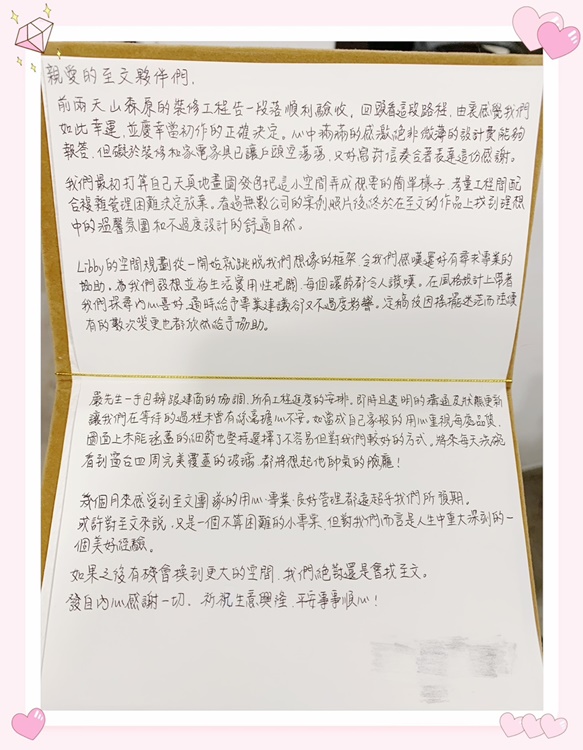 親愛的至文夥伴們，
前兩天山森原的裝修工程告一段落順利驗收，回顧看這段路程，由衷感覺我們
如此幸運，並慶幸當初作的正確決定。心中滿滿的感激絕非微薄的設計費能夠
報答，但礙於裝修和家電家具已讓戶頭空蕩蕩，又好寫封信湊合著表達這份感謝。
我們最初打算自己天真地畫圖發包把這小空間弄成想要的簡單樣子，考量工程間配
合複雜管理困難決定放棄。看過無數公司的案例照片後終於在至文的作品上找到理想
中的溫馨氛圍和不過度設計的舒適自然。
Libby的空間規劃從一開始就跳脫我們想像的框架，令我們感嘆還好有尋求專業的
協助。為我們發想並為生活實用性把關，每個環節都令人讚嘆。在風格設計上帶著
我們探尋內心喜好，適時給予專業建議卻又不過度影響。定稿後因搖擺迷茫而陸續
有的數次變更也都欣然給予協助。
嚴先生一手包辦跟建商的協調、所有工程進度的安排。即時且透明的溝通及狀態更新
讓我們在等待的過程未曾有絲毫擔心不安。如當成自己家般的用心重視每處品質，
圖面上未能涵蓋的細節也堅持選擇了不容易但對我們較好的方式。將來每天洗碗
看到窗台四周完美覆蓋的玻璃，都將想起他帥氣的臉龐！
幾個月來感受到至文團隊的用心、專業、良好管理都遠超乎我們所預期。
或許對至文來說，又是一個不算困難的小專案，但對我們而言是人生中重大深刻的一
個美好經驗。
如果之後有機會換到更大的空間，我們絕對還是會找至文。
發自內心感謝一切。祈祝生意興隆，平安事事順心！